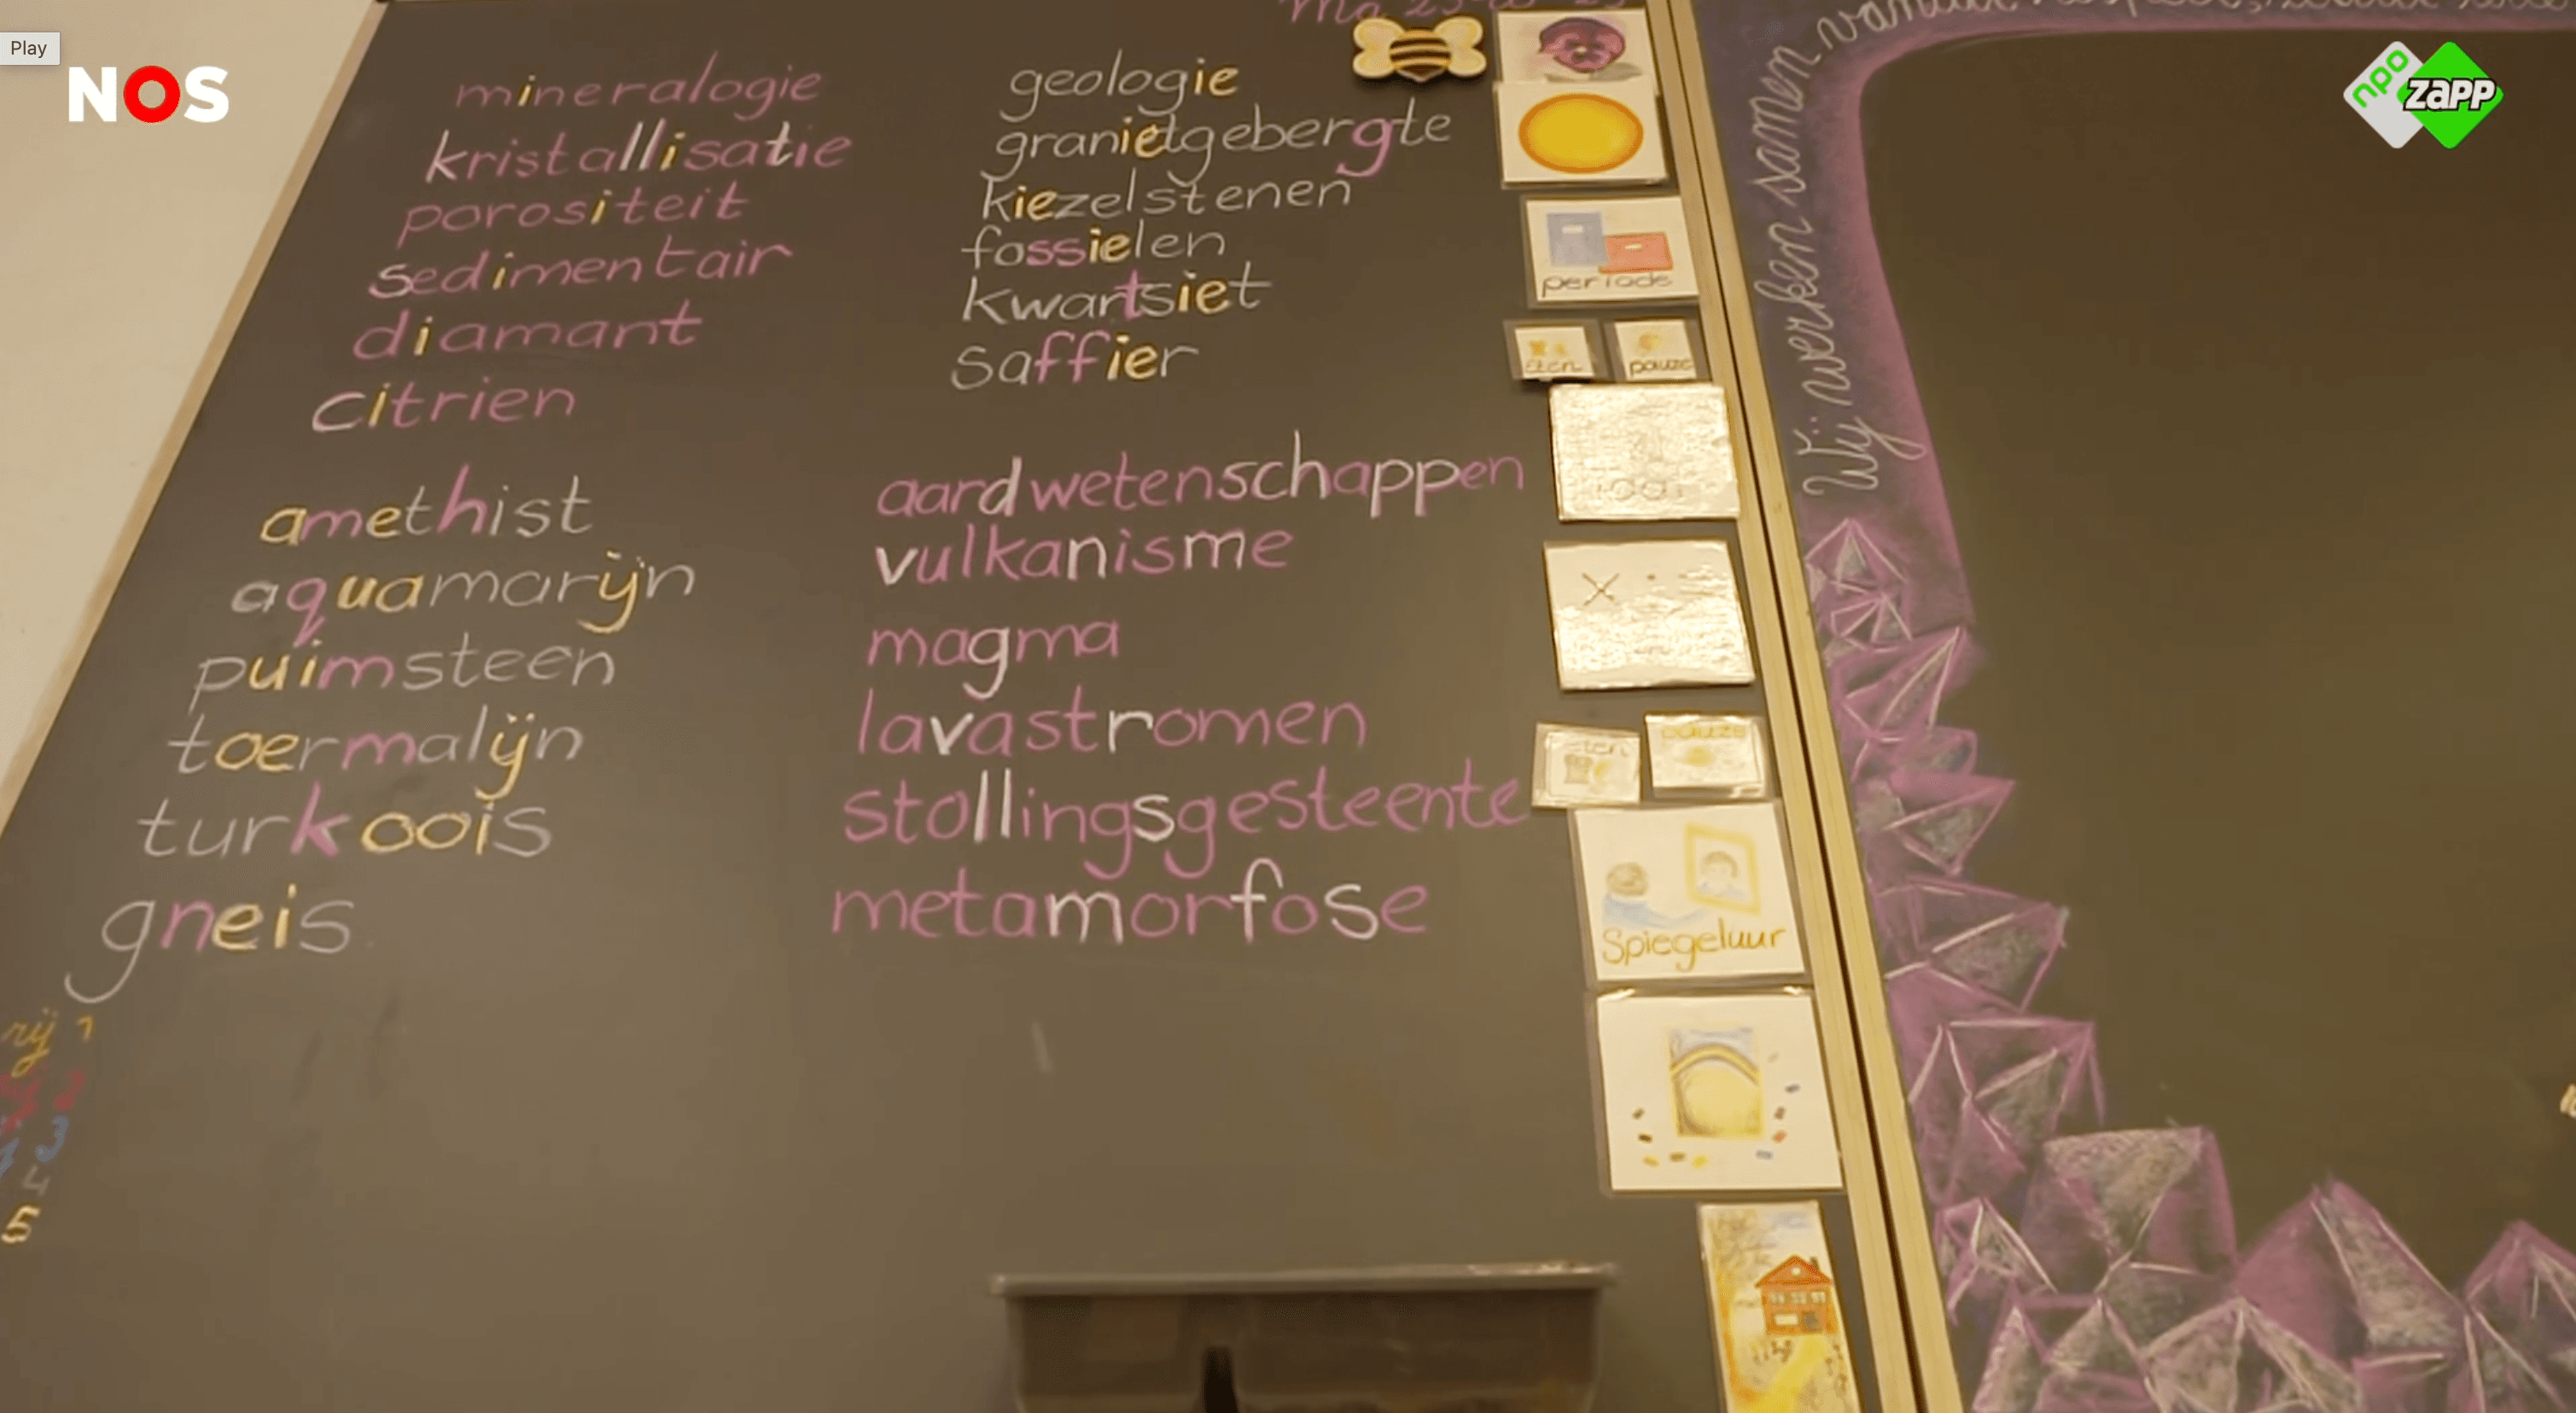 Play
NOS
npo
zapp
mineralogie
kristallisatie
porositeit
sedimentair
diamant
citrien
amethist
aquamarijn
puimsteen
toermalijn
turkoois
gneis
geologie
granietgebergte
kiezelstenen
fossielen
kwartsiet
saffier
aardwetenschappen
vulkanisme
magma
lavastromen
stollingsgesteente
metamorfose
rij 1
2
3
5
Ma
periode
eten
pauze
eten
pauze
Spiegeluur
Wij werken samen